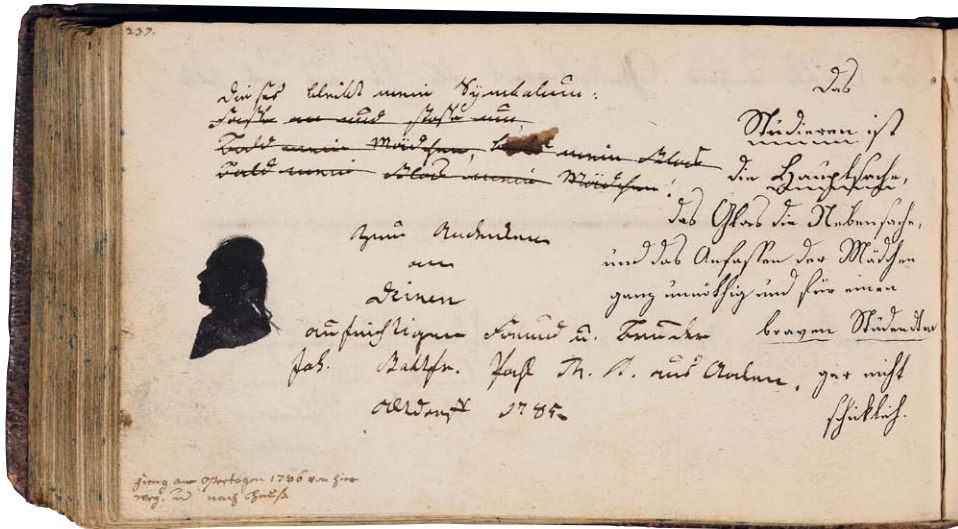 237.
Dieses bleibt mein Symbolum:
Fasse an und stosse an,
Bald mein Mädchen, bald mein Glas
Bald mein Glas mein Mädchen!
Zum Andenken
an
Deinen
aufrichtigen Freund u. Bruder
Joh. Gottfr. Pahl Th. C. aus Aalen,
Altdorff 1785.
Das
Studieren ist
die Hauptsache,
das Glas die Nebensache,
und das Anfassen der Mädchen
ganz unnöthig und für einen
braven Studenten
gar nicht
schicklich.
gieng am Ostertagen 1786 von hier
weg, und nach Hauß